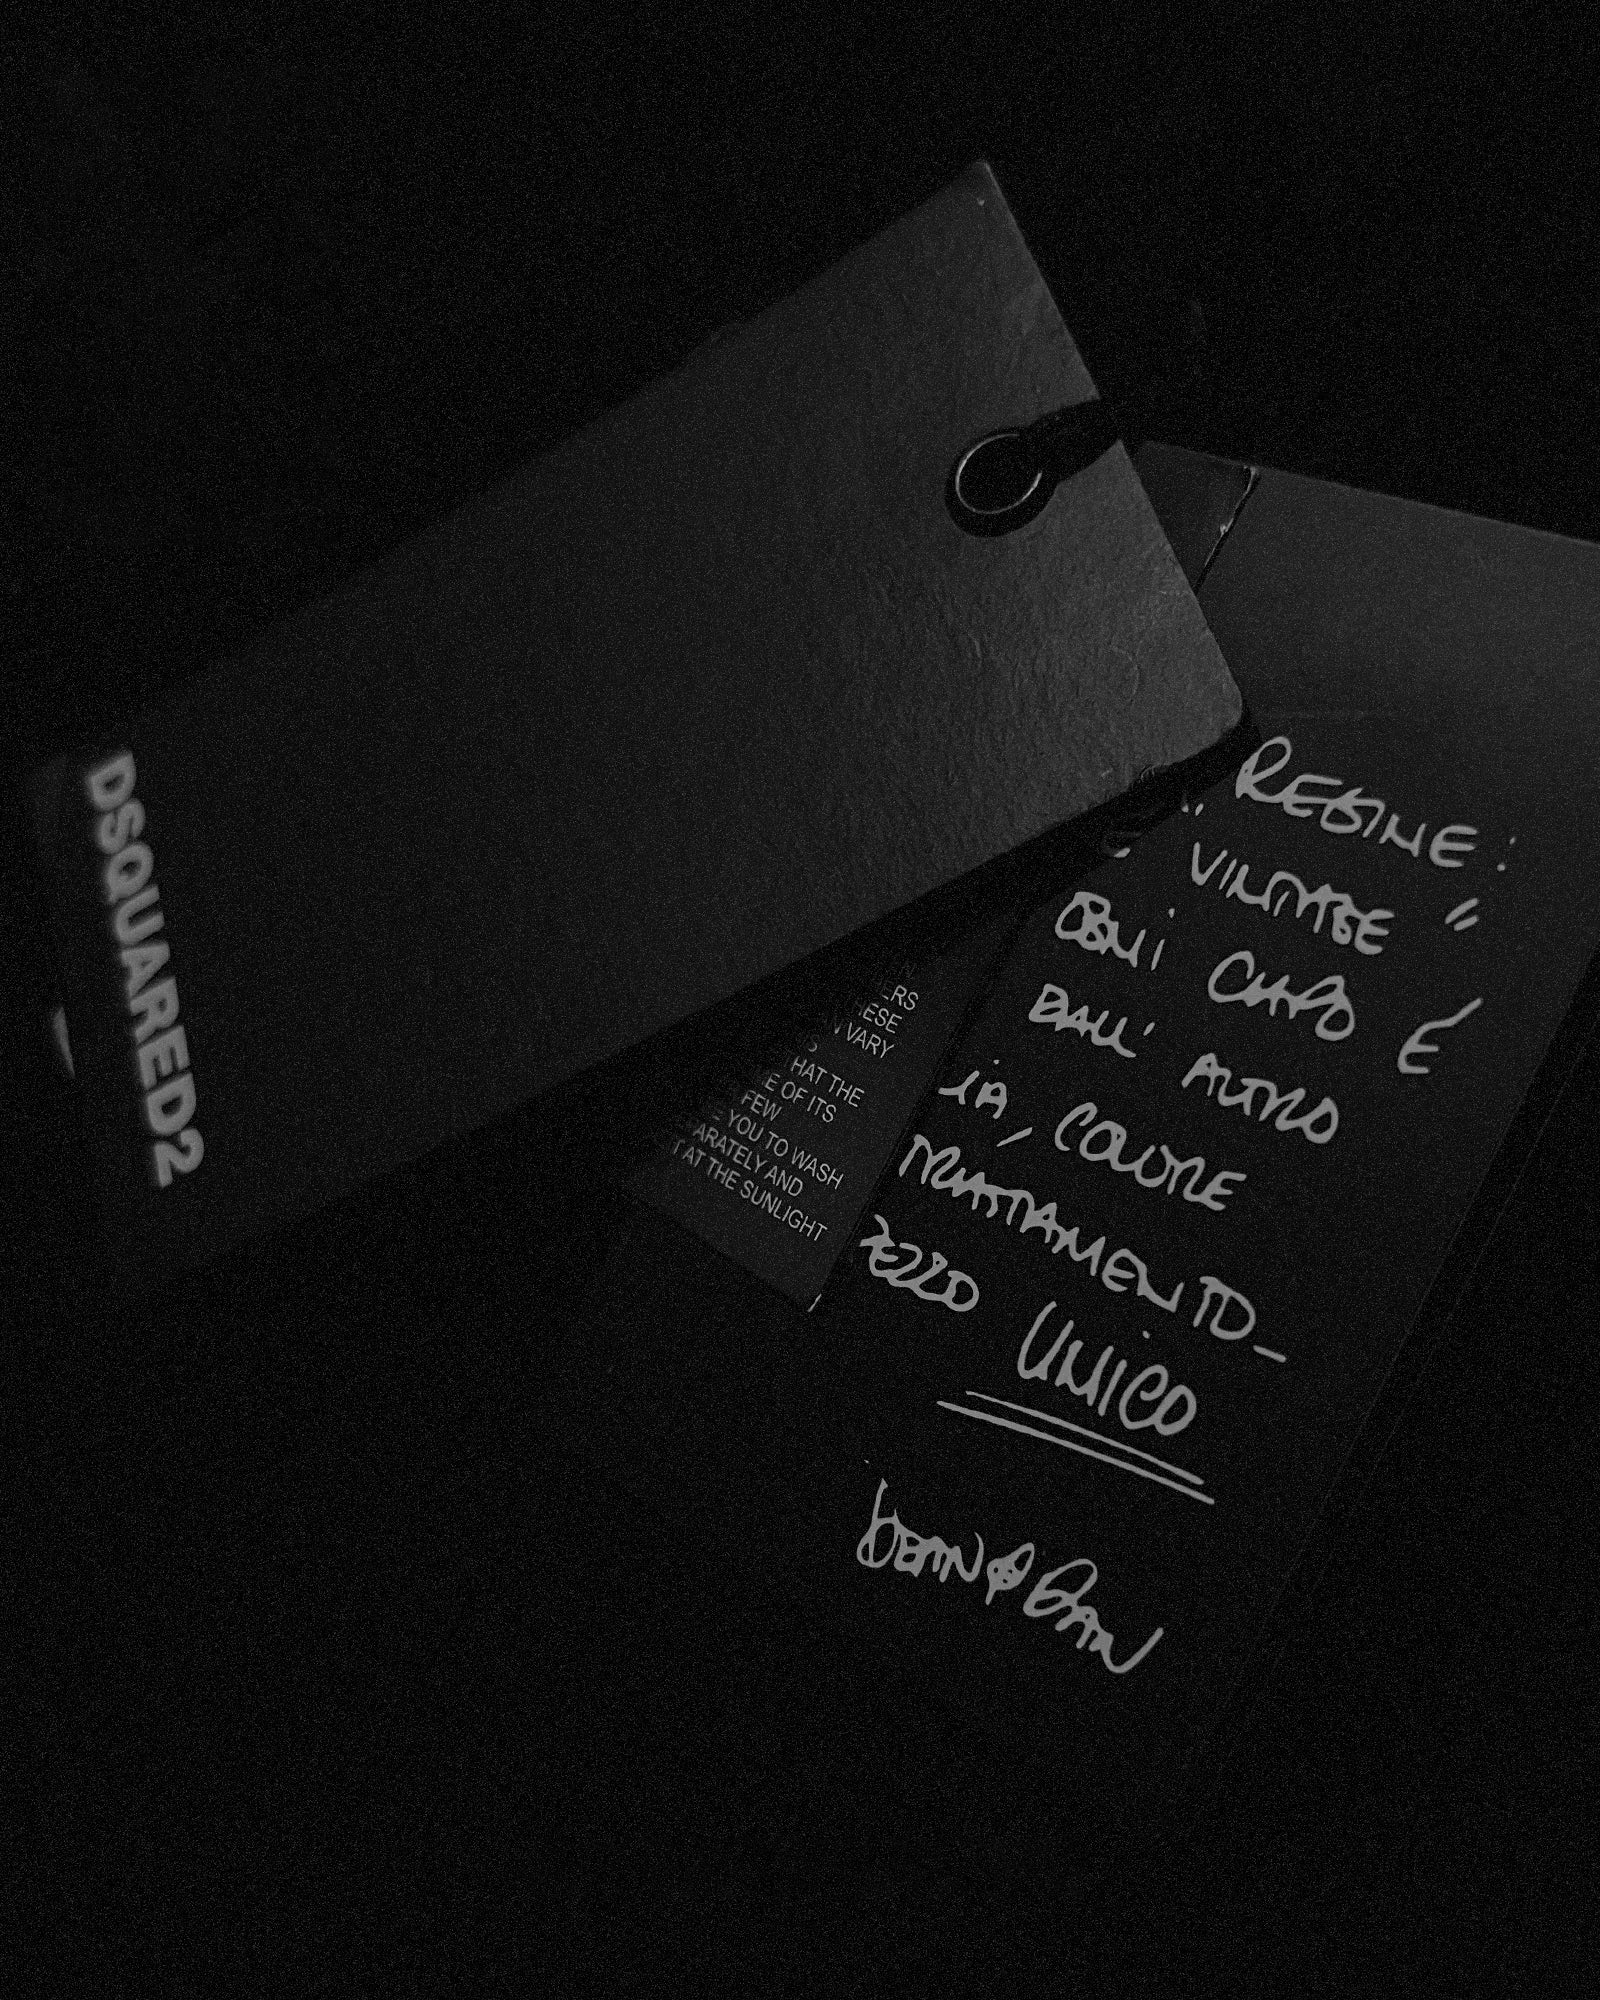 DSQUARED2
ERS
HESE
VARY
HAT THE
E OF ITS
FEW
E YOU TO WASH
ARATELY AND
T AT THE SUNLIGHT
REGINE:
VINTAGE "
OGNI CAPO É
DALL' ALTRO
IA, COLORE
TRATTAMENTO_
PEZZO UNICO
DEAN & DAN